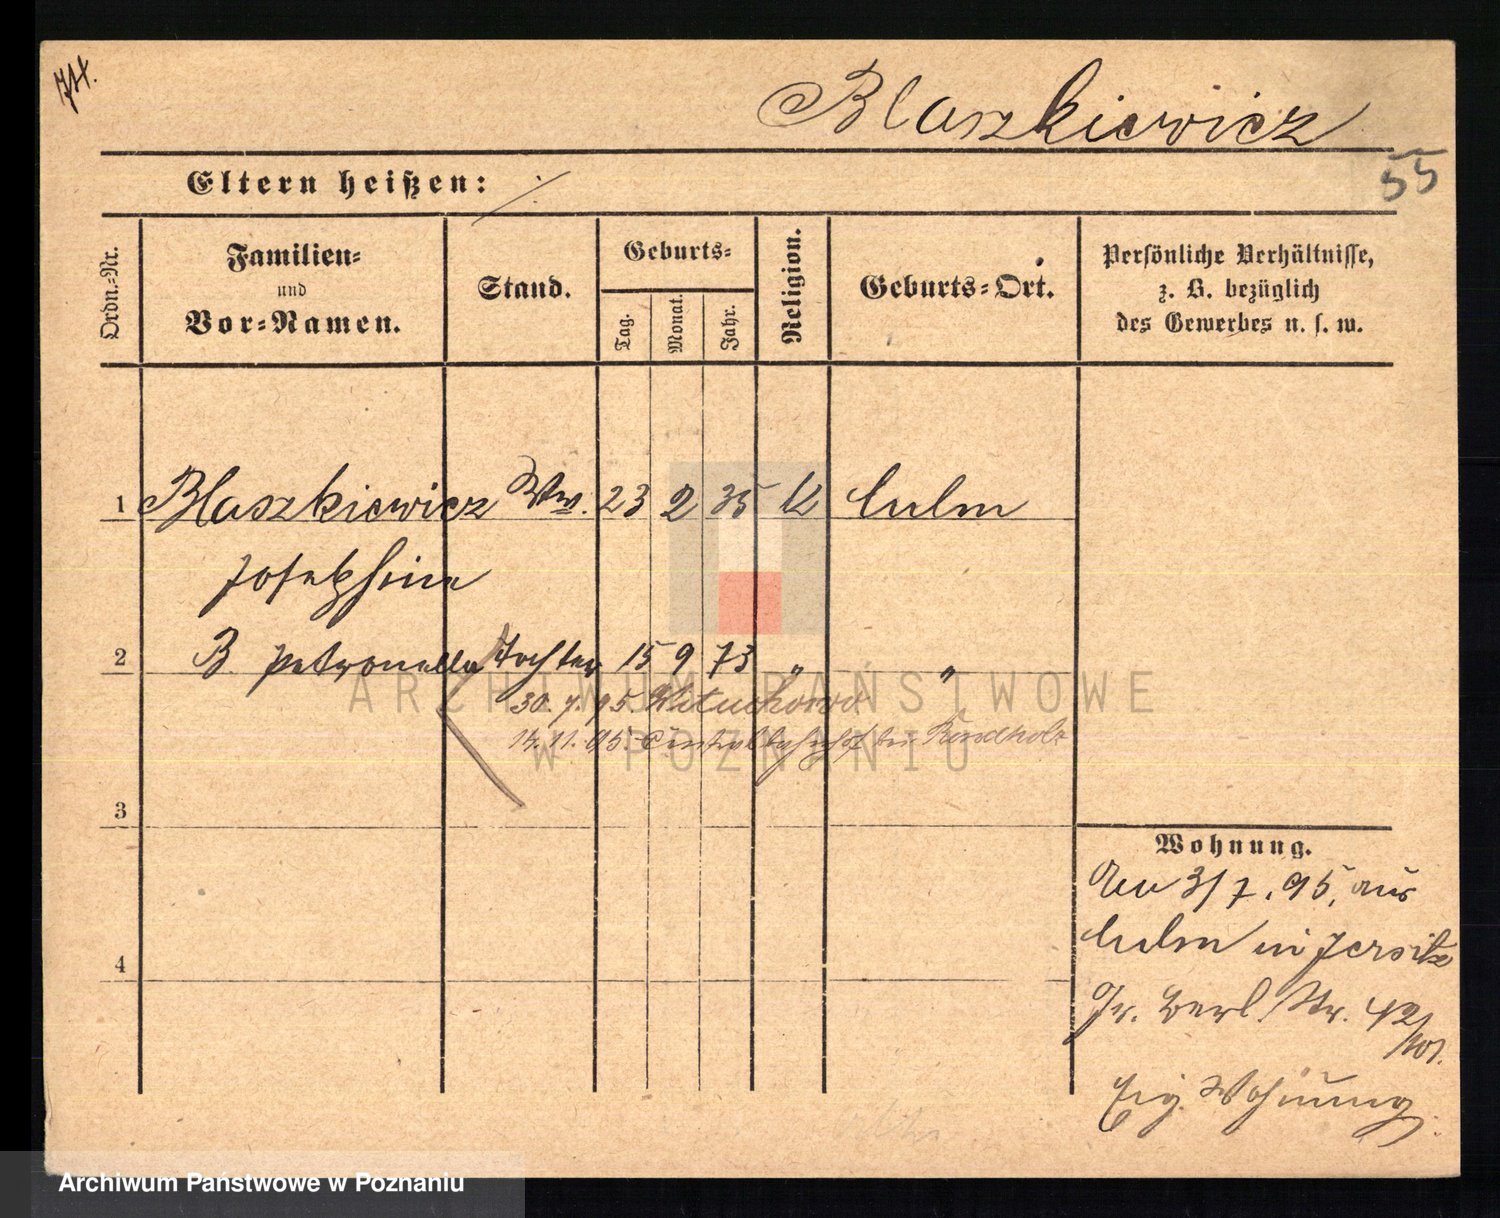 Blaszkiewicz
55
Eltern heißen:
Ordn.-Nr.
Familien-
und
Vor-Namen.
Stand.
Geburts-
Tag.
Monat.
Jahr.
Religion.
Geburts-Ort.
Persönliche Verhältnisse,
z. B. bezüglich
des Gewerbes u. s. w.
1 Blaszkiewicz Ww. 23 2 35 k Culm
Josephine
2 B. Petronella Tochter 15 9 73 " "
30. 7. 95.
14. 11. 95. Centralbahnhof bei Rindholz
3
4
Wohnung.
3/7. 95, aus
Culm in Jersitz
Gr. Berl. Str. 42
Eig. Wohnung.
ARCHIWUM PAŃSTWOWE
W POZNANIU
Archiwum Państwowe w Poznaniu